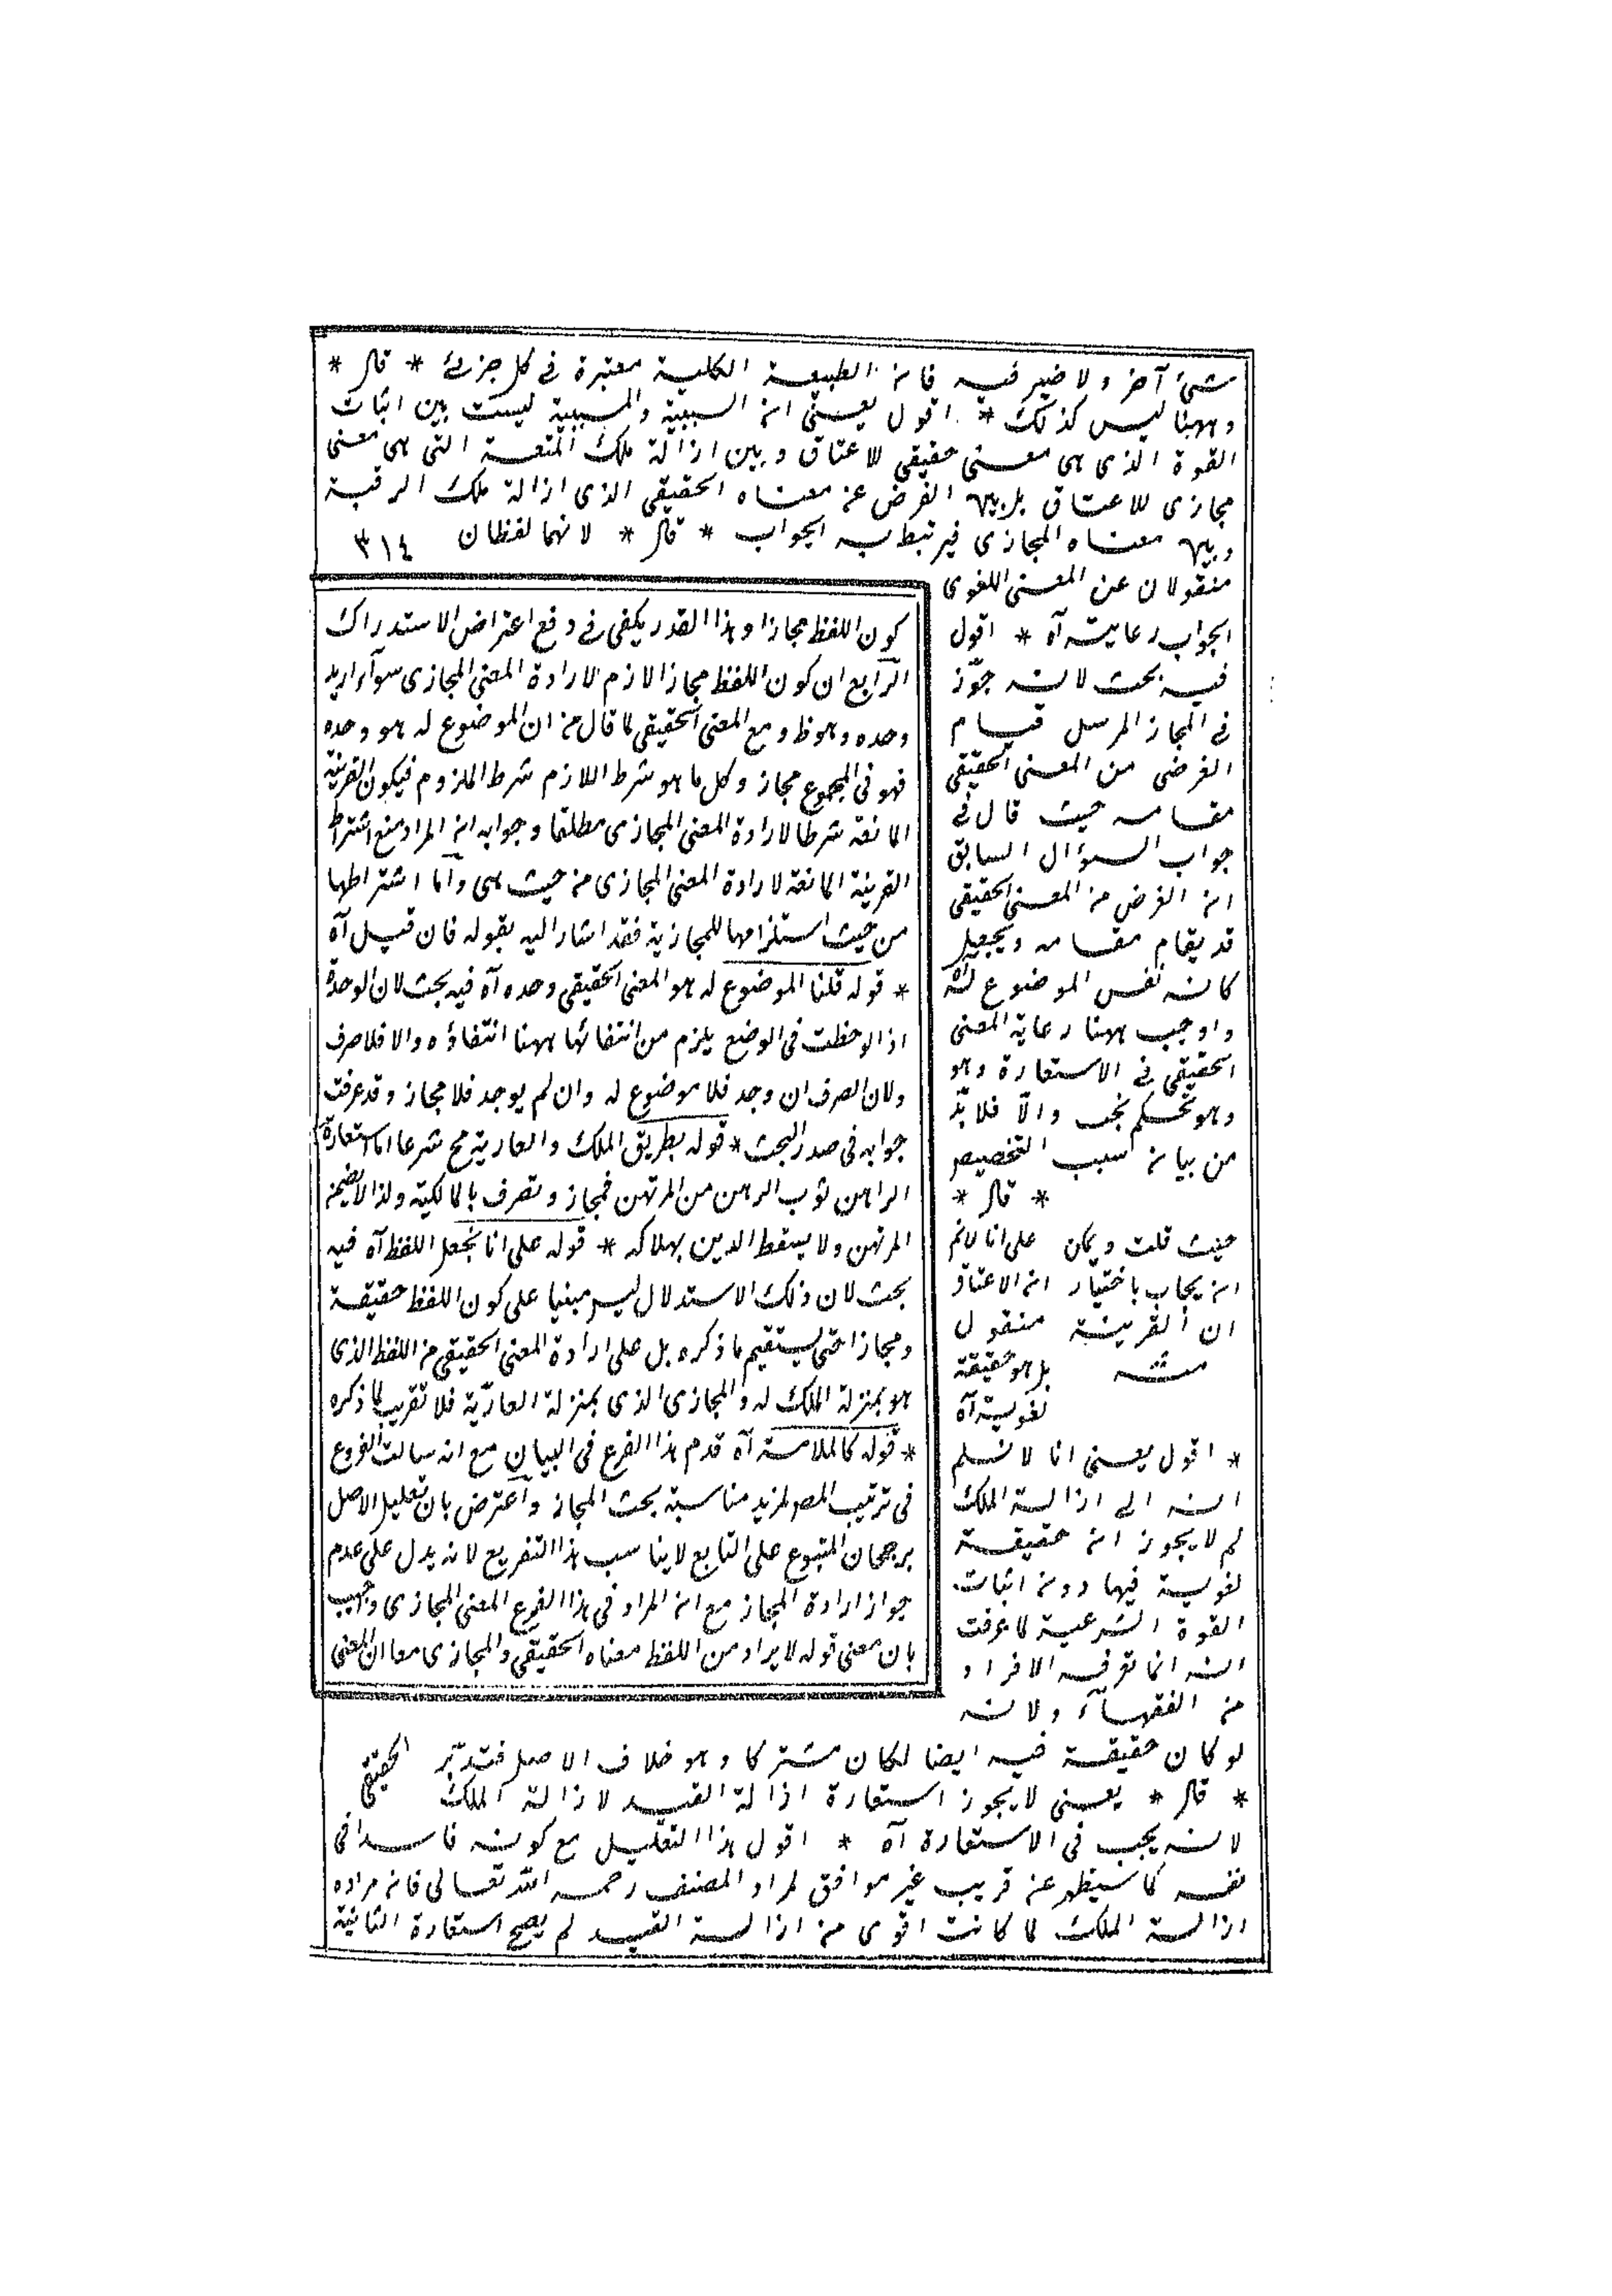 شئ آخر ولا ضير فيه فان الطبيعة الكلية معتبرة فى كل جزئى * قال *
وههنا ليس كذلك * اقول يعنى ان السببية والمسببية ليست بين اثبات
القوة الذى هى معنى حقيقى للاعتاق وبين ازالة ملك المتعة التى هى معنى
مجازى للاعتاق بل بين الغرض عن معناه الحقيقى الذى ازالة ملك الرقبة
وبين معناه المجازى فيرتبط به الجواب * قال * لانهما لفظان
٣١٤
منقولان عن المعنى اللغوى
الجواب رعايته آه * اقول
فيه بحث لانه جوّز
فى المجاز المرسل قيام
الغرضى من المعنى الحقيقى
مقامه حيث قال فى
جواب السؤال السابق
ان الغرض من المعنى الحقيقى
قد يقام مقامه ويجعل
كانه نفس الموضوع له
واوجب ههنا رعاية المعنى
الحقيقى فى الاستعارة وهو
وهو تحكم بحت والّا فلا بدّ
من بيان سبب التخصيص
* قال *
على انا لانم
ان الاعتاق
منقول
بل هو حقيقة
لغوية آه
حيث قلت ويمكن
ان يجاب باختيار
ان القرينة
منه
* اقول يعنى انا لا نسلم
انه الى ازالة الملك
لم لا يجوز ان حقيقة
لغوية فيها دون اثبات
القوة الشرعية لما عرفت
انه انما تعرفه الافراد
من الفقهاء ولانه
لو كان حقيقة فيه ايضا لكان مشتركا وهو خلاف الاصل فتدبّر
* قال * يعنى لا يجوز استعارة ازالة القيد لازالة الملك
لانه يجب فى الاستعارة آه * اقول هذا التعليل مع كونه فاسدا فى
نفسه كما سيظهر عن قريب غير موافق لمراد المصنف رحمه الله تعالى فان مراده
ازالة الملك لما كانت اقوى من ازالة القيد لم يصح استعارة الثانية
كون اللفظ مجازا وهذا القدر يكفى فى دفع اعتراض الاستدراك
الرابع ان كون اللفظ مجازا لازم لارادة المعنى المجازى سوآء اريد
وحده وهو ظ ومع المعنى الحقيقى لما قال من ان الموضوع له هو وحده
فهو فى المجموع مجاز وكل ما هو شرط اللازم شرط الملزوم فيكون القرينة
المانعة شرطا لارادة المعنى المجازى مطلقا وجوابه ان المراد منع اشتراط
القرينة المانعة لارادة المعنى المجازى من حيث هى واما اشتراطها
من حيث استلزامها للمجازية فقد اشار اليه بقوله فان قيل آه
* قوله قلنا الموضوع له هو المعنى الحقيقى وحده آه فيه بحث لان الوحدة
اذا لوحظت فى الوضع يلزم من انتفائها ههنا انتفاؤه والا فلا صرف
ولان الصرف ان وجد فلا موضوع له وان لم يوجد فلا مجاز وقد عرفت
جوابه فى صدر البحث * قوله بطريق الملك والعارية مح شرعا اما استعارة
الراهن ثوب الرهن من المرتهن فمجاز وتصرف بالمالكية ولذا لا يضمنه
المرتهن ولا يسقط الدين بهلاكه * قوله على انا نجعل اللفظ آه فيه
بحث لان ذلك الاستدلال ليس مبنيا على كون اللفظ حقيقة
ومجازا حتى يستقيم ما ذكره بل على ارادة المعنى الحقيقى من اللفظ الذى
هو بمنزلة الملك له والمجازى الذى بمنزلة العاريّة فلا تقريب لما ذكره
* قوله كالملامسة آه قدم هذا الفرع فى البيان مع انه سالت الفروع
فى ترتيب المص لمزيد مناسبة بحث المجاز واعترض بان تعليل الاصل
برجحان المتبوع على التابع لا يناسب هذا التفريع لانه يدل على عدم
جواز ارادة المجاز مع ان المراد فى هذا الفرع المعنى المجازى واجيب
بان معنى قوله لا يراد من اللفظ معناه الحقيقى والمجازى معا ان المعنى
الحقيقى